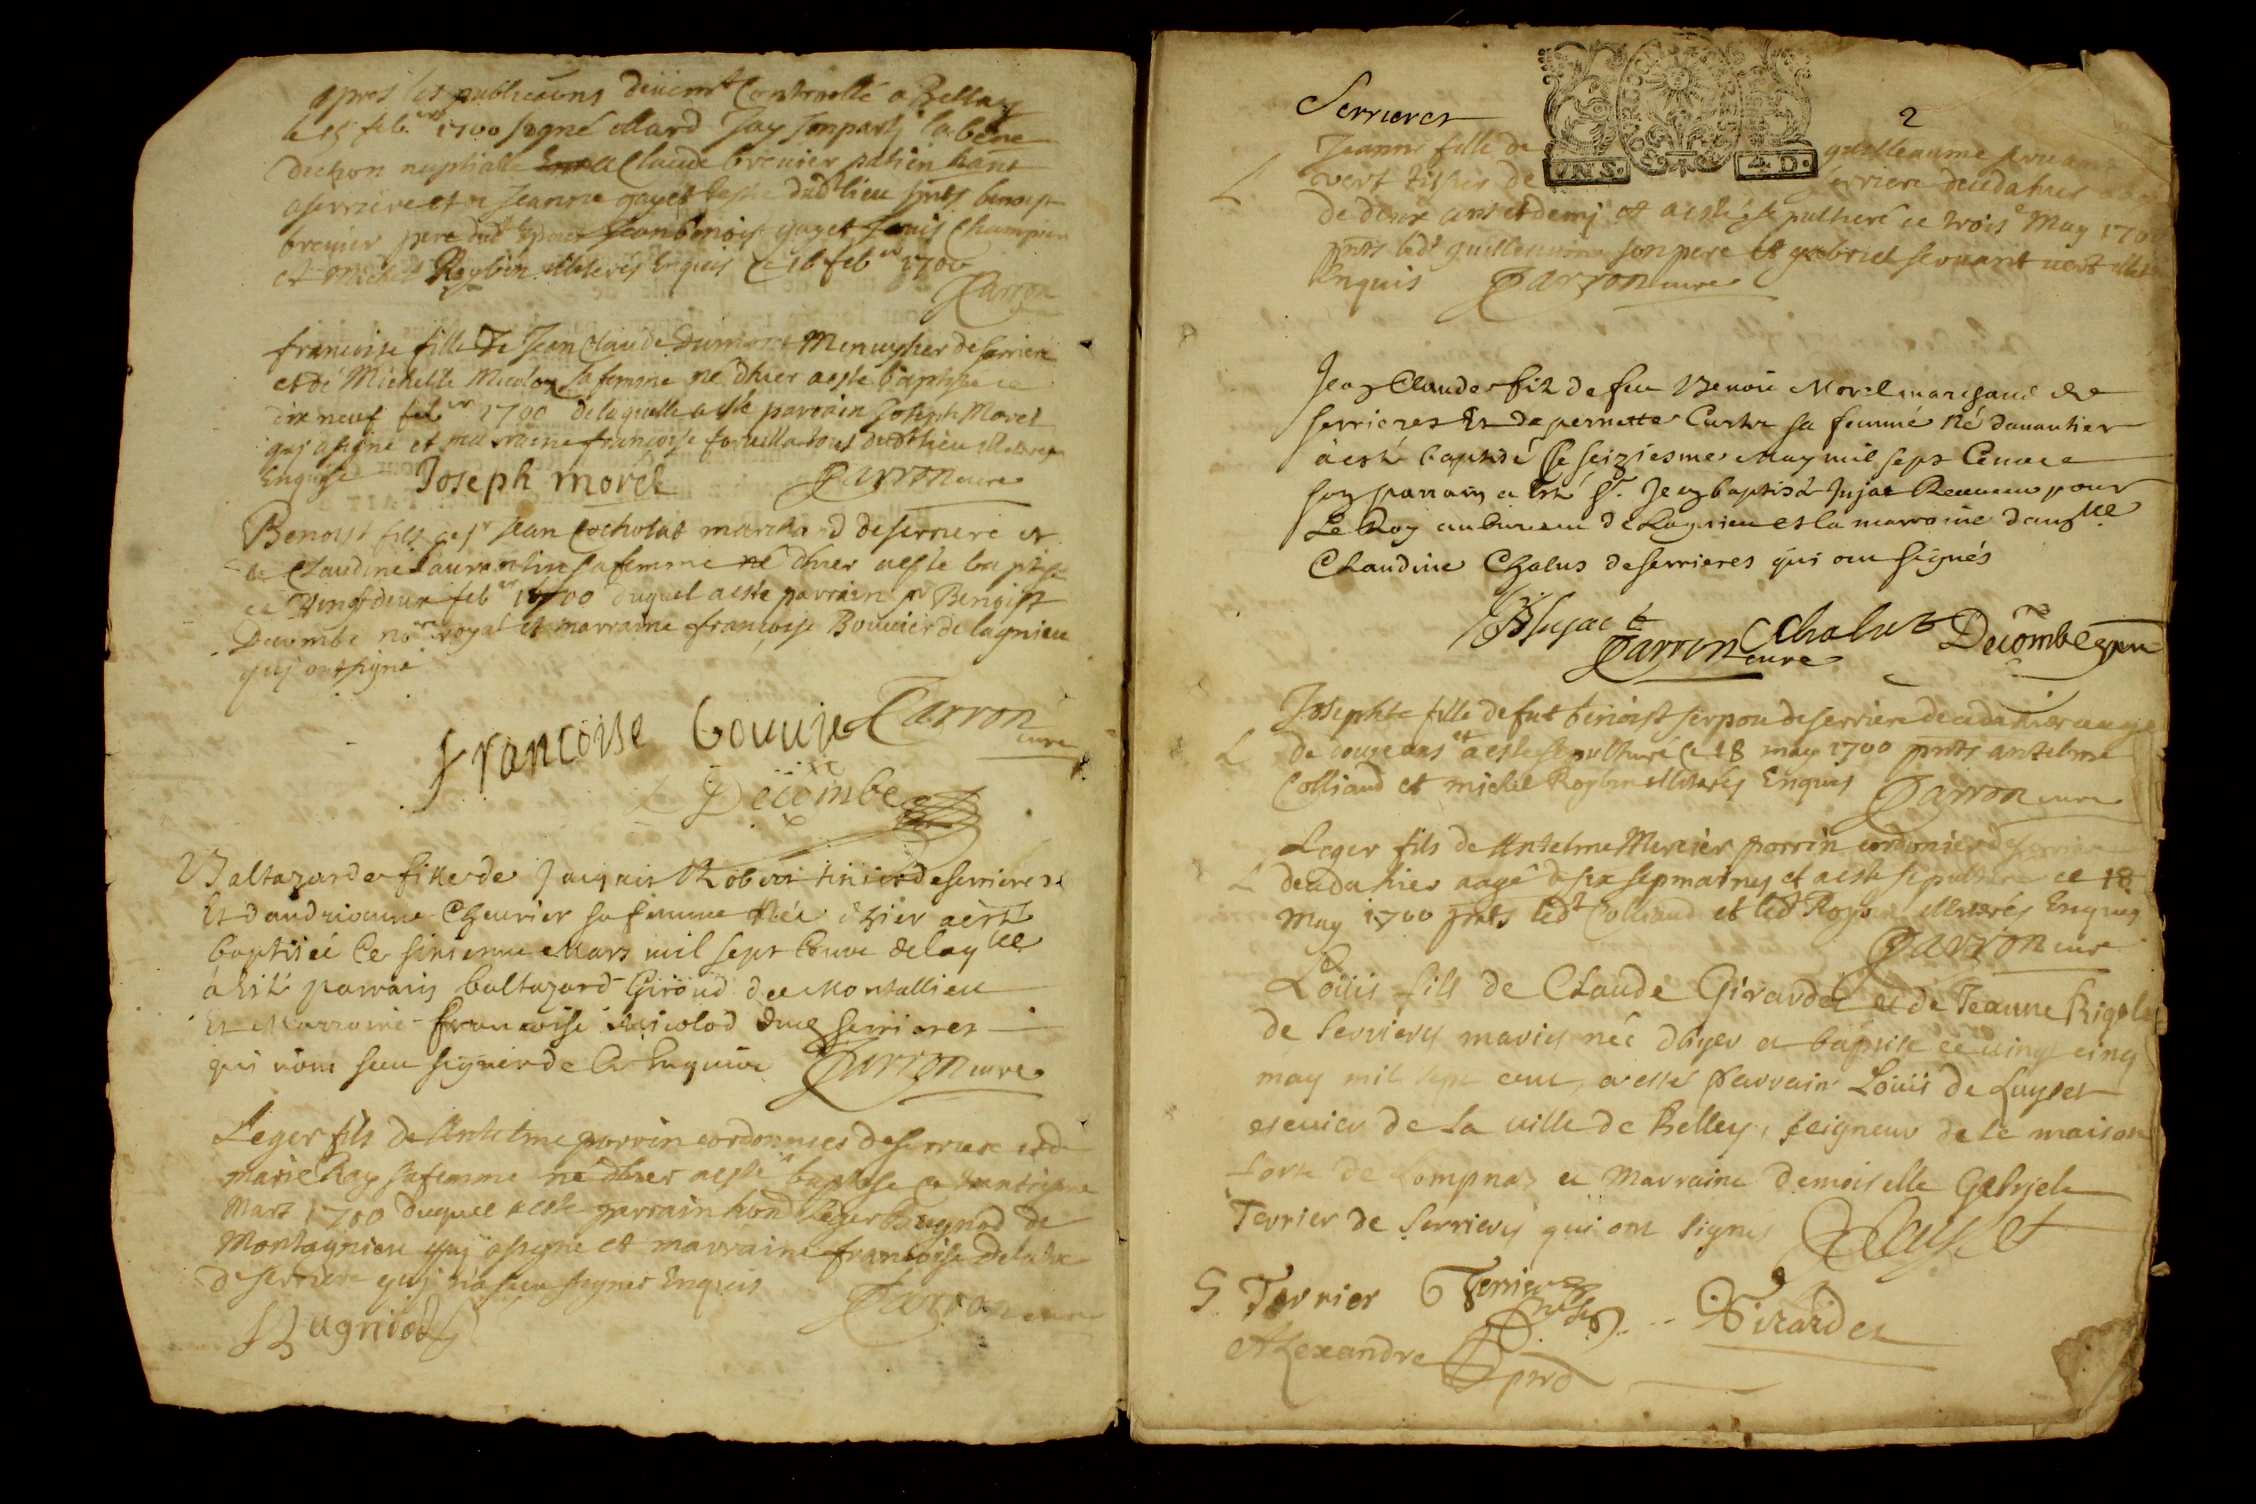 apres les publicaõns deüemt Controollé a Bellay
le 15 feb.er 1700 signé Mard Jay Imparty la béne
diction nuptialle Claude breuier patien hant
a serriere et a Jeanne gayet dudt lieu pnts benoist
breuier pere dudt Epoux Jean benoist gayet Champion
et michel Roybin Illiterés Enquis ce 16 feber 1700
Carron
francoise fille De Jean Claude Dumont Menuysier de serriere
et de Michelle Micolon sa femme né dhier aesté baptisée ce
dix neuf feber 1700 de laquelle aesté parrain Joseph Morel
quj a signé et marraine francoise dudt lieu Illiterée
Enquise Joseph morel Carron cure
Benoist fils de sr Jean Cocholat marchand de serriere et
de Claudine Laurentin sa femme né dhier aesté baptisé
ce Vingt deux feber 1700 duquel aesté parrain sr Benoist
Decombe nore royal et marraine francoise Bouuier de lagnieu
quj ont signé
francoise bouuie Carron
cure
Decombe
Baltazarde fille de Jacques Robert de serrieres
Et dandrianne Cheurier sa femme Née dhier aesté
baptisée Ce Mars mil sept Cents de laqlle
à Esté parrain baltazard Giroud de Montallieu
Et Marraine francoise Micolod de serrieres
qui nont sceu signer de Ce Enquis Carron cure
Leger fils de Antelme porrin cordonnier de serriere et de
marie Ray sa femme né dhier aesté baptisé ce
Mars 1700 duquel aesté parrain hond Leger Bugniod de
Montagnieu quj a signé et marraine francoise
de serriere quj n'a sceu signer Enquis Carron cure
Bugniod
Serrieres 2
Jeanne fille de guilleaume seruant
vert tissier de serriere decedahier
de deux ans et demj et aesté sepulturé ce trois e May 1700
pnts ledt guilleaume son pere et gabriel seruant vert
Enquis Carron cure
Jean Claude fils de feu Benoit Morel marchand de
serrieres Et de pernette sa femme Né dauantier
à esté baptisé Ce seiziesme May mil sept Cents
son parrain a Esté Sr. Jean baptiste Jujat Receueur pour
Le Roy au bureau de Lagnieu et la marraine damlle
Claudine Chalus de serrieres qui ont signés
JB Jujat Carron cure C Chalus Decombe
Josephte fille de fut benoist serpou de serriere decedahier aagé
de douze ans et aesté sepulturé ce 18 may 1700 pnts antelme
Colliand et michel Roybin Illiterés Enquis Carron cure
Leger fils de Antelme Mercier porrin cordonier de serriere
decedahier aagé de six sepmaines et aesté sepulturé ce 18
May 1700 pnts ledt Colliand et ledt Roybin Illiterés Enquis
Carron cure
Loüis fils de Claude Girardet et de Jeanne Rigolet
de serrieres mariés né dhyer a baptisé ce vingt cinq
may mil sept cent, a esté Parrain Loüis de Luyset
escuier de la ville de Belley, seigneur de la maison
forte de Lompnas et Marraine Demoiselle Gabrjele
Terrier de serrieres qui ont signés DLuyset
G. Terrier Terrier Girardet
Alexandre